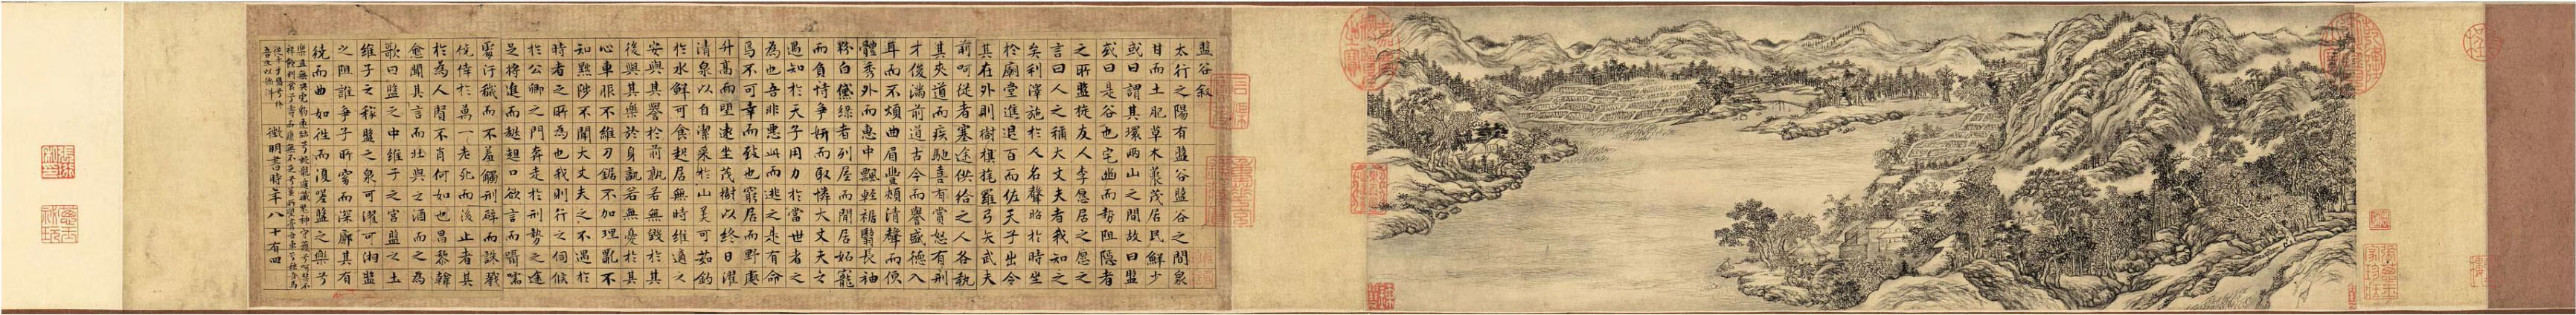 盤谷叙
太行之陽有盤谷盤谷之間泉
甘而土肥草木藂茂居民鮮少
或曰謂其環兩山之間故曰盤
或曰是谷也宅幽而勢阻隱者
之所盤旋友人李愿居之愿之
言曰人之稱大丈夫者我知之
矣利澤施於人名聲昭於時坐
於廟堂進退百而佐天子出令
其在外則樹旗旄羅弓矢武夫
前呵從者塞途供給之人各執
其夾道而疾馳喜有賞怒有刑
才俊滿前道古今而譽盛德入
耳而不煩曲眉豐頰清聲而便
體秀外而惠中飄輕裾翳長袖
粉白黛綠者列屋而閒居妬寵
而負恃爭妍而取憐大丈夫之
遇知於天子用力於當世者之
為也吾非惡此而逃之是有命
焉不可幸而致也窮居而野處
升高而望遠坐茂樹以終日濯
清泉以自潔采於山美可茹釣
於水鮮可食起居無時維適之
安與其譽於前孰若無毀於其
後與其樂於身孰若無憂於其
心車服不維刀鋸不加理亂不
知黜陟不聞大丈夫之不遇於
時者之所為也我則行之伺候
於公卿之門奔走於刑勢之途
足將進而趑趄口欲言而囁嚅
處汙穢而不羞觸刑辟而誅戮
僥倖於萬一老死而後止者其
於為人間不肖何如也昌黎韓
愈聞其言而壯與之酒而之為
歌曰盤之中維子之宮盤之土
維子之稼盤之泉可濯可湘盤
之阻誰爭子所窈而深廓其有
繞而曲如往而復嗟盤之樂兮
樂且無央虎豹遠跡兮蛟龍遁藏鬼神守護兮呵禁不
祥飲則食兮壽而康無不足兮奚所望膏吾車兮秣吾馬
從子于盤兮終
吾生以徜徉
徵明書時年八十有四